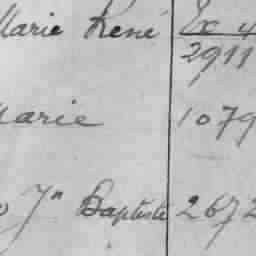 Marie René Ex 4
2911
Marie 1079
Jn Baptiste 2672